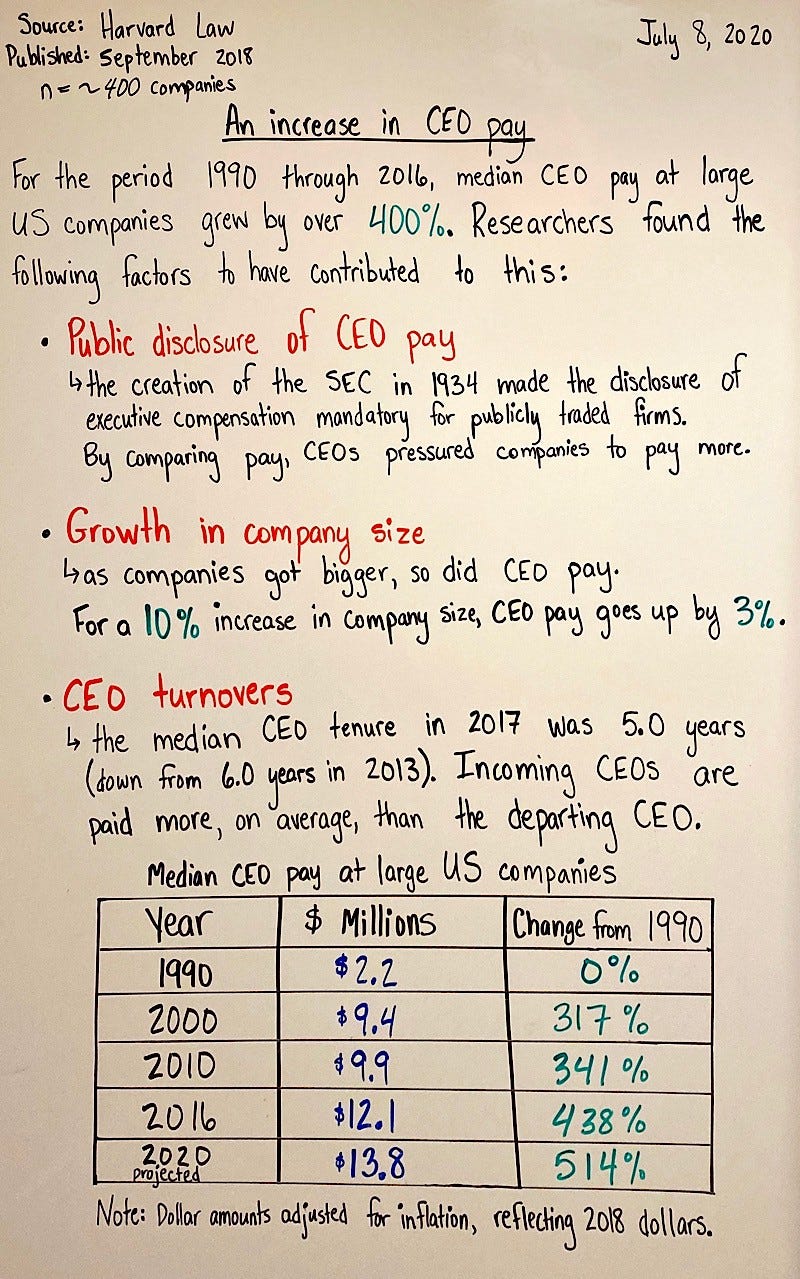 Source: Harvard Law
Published: September 2018
n = ~400 companies
July 8, 2020
An increase in CEO pay
For the period 1990 through 2016, median CEO pay at large
US companies grew by over 400%. Researchers found the
following factors to have contributed to this:
• Public disclosure of CEO pay
↳ the creation of the SEC in 1934 made the disclosure of
executive compensation mandatory for publicly traded firms.
By comparing pay, CEOs pressured companies to pay more.
• Growth in company size
↳ as companies got bigger, so did CEO pay.
For a 10% increase in company size, CEO pay goes up by 3%.
• CEO turnovers
↳ the median CEO tenure in 2017 was 5.0 years
(down from 6.0 years in 2013). Incoming CEOs are
paid more, on average, than the departing CEO.
Median CEO pay at large US companies
Year $ Millions Change from 1990
1990 $2.2 0%
2000 $9.4 317%
2010 $9.9 341%
2016 $12.1 438%
2020 projected $13.8 514%
Note: Dollar amounts adjusted for inflation, reflecting 2018 dollars.